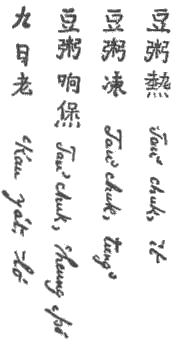 豆粥熱 Tau² chuk, ít
豆粥凍 Tau² chuk, tung³
豆粥响煲 Tau² chuk, ʻheung pò
九日老 ʻKau yát, ʻló